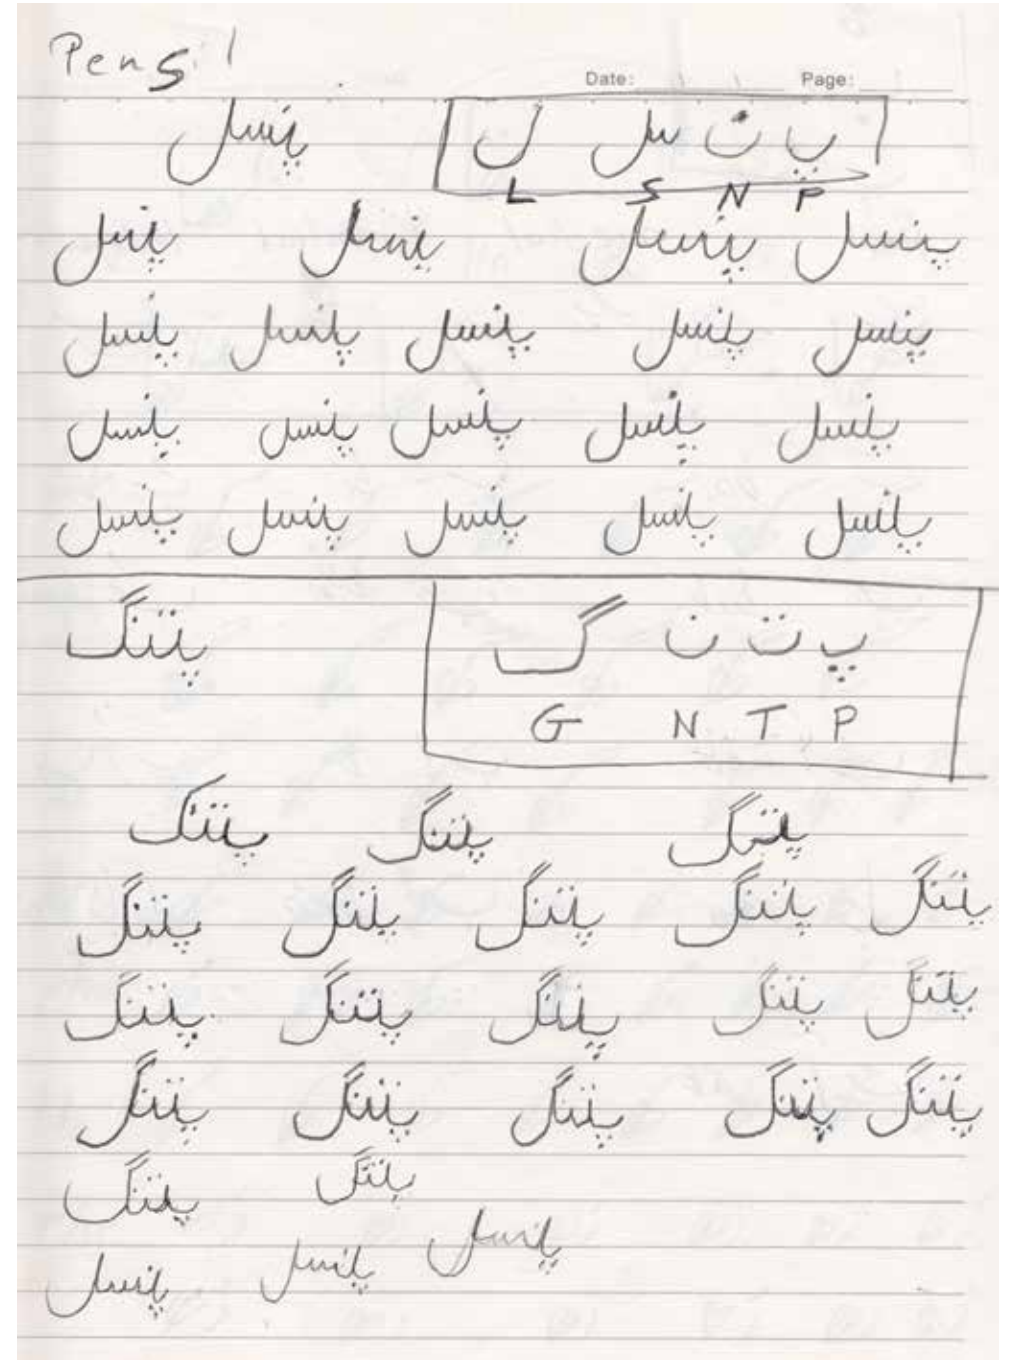 Pensil
Date: Page:
پ ن س ل پنسل
L S N P
پنسل پنسل پنسل پنسل
پنسل پنسل پنسل پنسل پنسل
پنسل پنسل پنسل پنسل پنسل
پنسل پنسل پنسل پنسل پنسل
پ ت ن گ پتنگ
G N T P
پتنگ پتنگ پتنگ
پتنگ پتنگ پتنگ پتنگ پتنگ
پتنگ پتنگ پتنگ پتنگ پتنگ
پتنگ پتنگ پتنگ پتنگ پتنگ
پتنگ پتنگ
پنسل پنسل پنسل